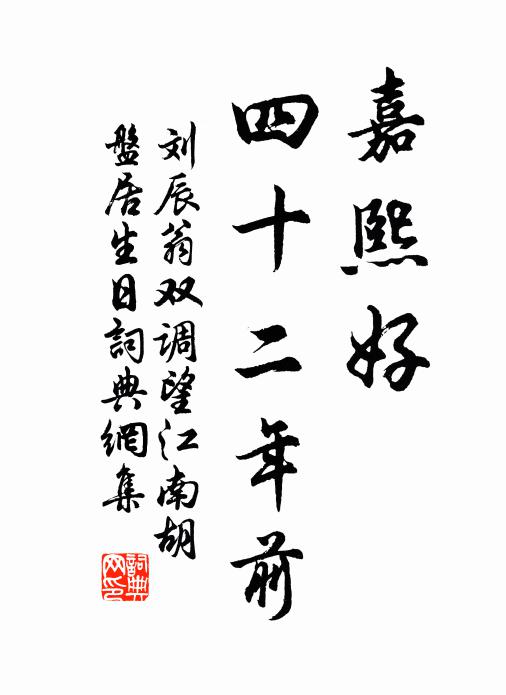 嘉熙好
四十二年前
刘辰翁双调望江南胡
盤居生日詞典網集
詞典
网印